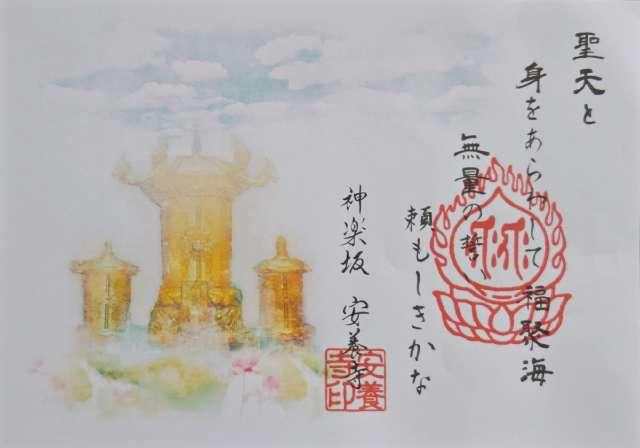 聖天と
身をあらわして福聚海
無量の誓い
頼もしきかな
神楽坂 安養寺
安養寺印